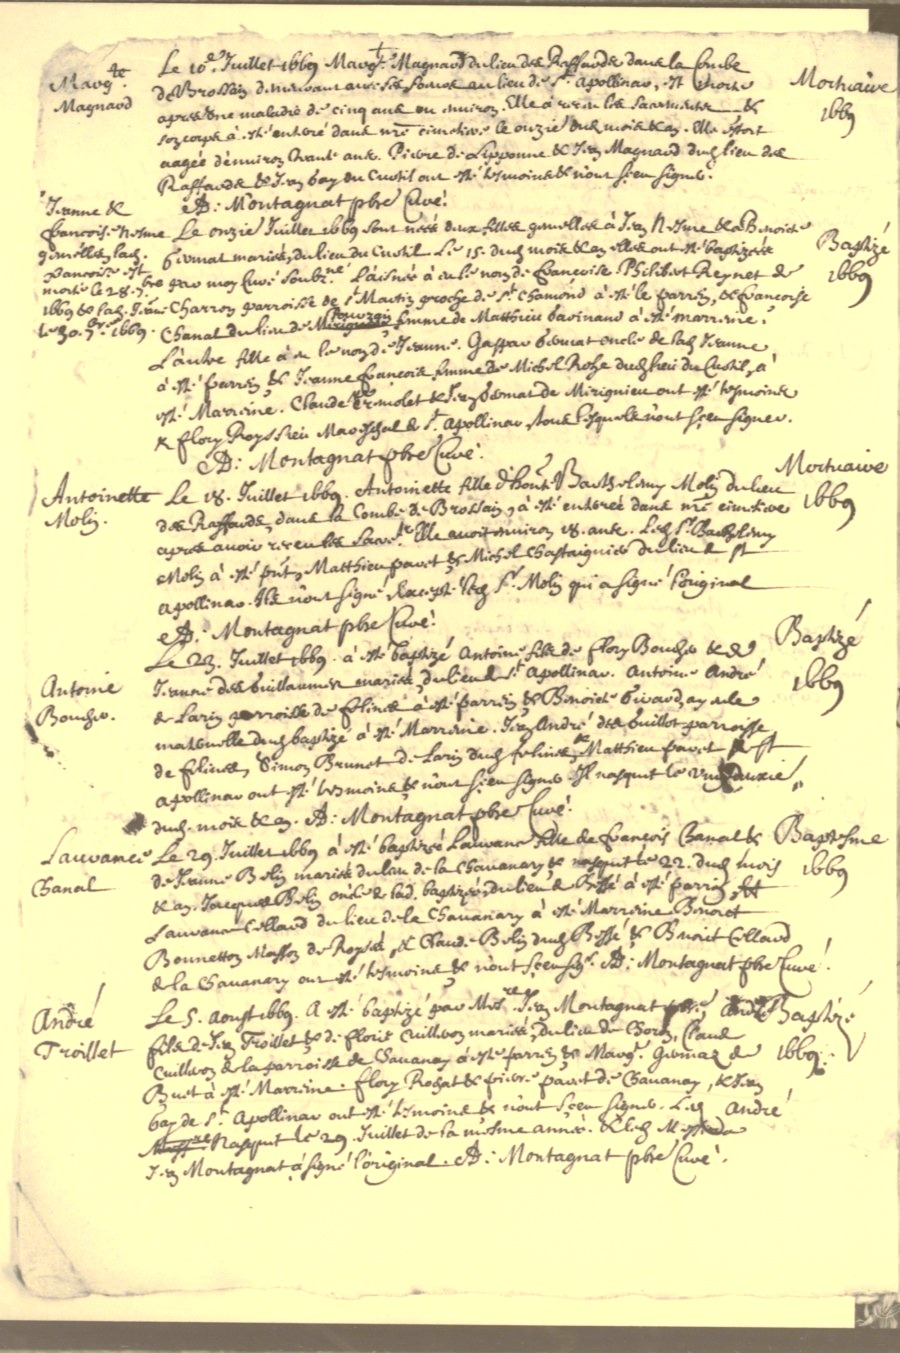 Marg.te
Magnard
Le 10e. Juillet 1669 Marg.te Magnard du lieu des Raffarde dans la Combe
de Brossain demeurant avec ses au lieu de St. Apollinar, est morte
apres une maladie de cinq ans ou environ. Elle a receu les Sacrements &
son corps à esté enterré dans nre cimetiere le onzie dud. mois & an. Elle estoit
aagée d'environ trante ans. Pierre de Lipponne & Jean Magnard dud. lieu des
Raffarde & Jean bay du Custil ont esté tesmoins & n'ont sçeu signer.
A: Montagnat pbre Curé.
Mortuaire
1669
Jeanne &
francoise nesme
gemelles lad.
francoise est
morte le 28. 7bre
1669 & lad. Jeanne
le 30. 7bre 1669.
Le onzie Juillet 1669 sont neés deux filles gemelles à Jean Nesme & à Benoite
Germat mariés, du lieu du Custil. Le 15. dud. mois & an elles ont esté baptizées
par moy Curé soubz.né L'aisnée à eu le nom de francoise Philibert Reynet de
Charron parroisse de St. Martin proche de St. Chamond à esté le parrin, & francoise
Chanal du lieu de femme de Matthieu Gavinand à esté marreine.
L'autre fille à eu le nom de Jeanne. Gaspar Germat oncle de lad. Jeanne
à esté parrin & Jeanne françoise femme de Michel Roze dud. lieu du Custil, à
esté Marreine. Claude Ermolet & Jean Germat de Mirignieu ont esté tesmoins
& flory Royssieu Mareschal de St. Apollinar, tous lesquels n'ont sçeu signer.
A: Montagnat pbre Curé.
Baptizé
1669
Antoinette
Molin.
Le 18. Juillet 1669. Antoinette fille d'hont. Barthelemy Molin du lieu
des Raffarde, dans la Combe de Brossain, à esté enterée dans nre cimetiere
apres avoir receu les Sacr.ts Elle avoit environ 18. ans. Led. Sr. Barthelemy
Molin à esté pnt, Matthieu pavet & Michel Chastaignier du lieu de St
Apollinar. Ils n'ont signé Excepté led. Sr. Molin qui a signé l'original
A: Montagnat pbre Curé.
Mortuaire
1669
Antoine
Boucher.
Le 23. Juillet 1669. à esté baptizé Antoine fils de flory Boucher & de
Jeanne des Guillaumes mariés, du lieu de St. Apollinar. Antoine André
de Larin parroisse de felines à esté parrin & Benoite Girardzay
maternelle dud. baptizé à esté Marreine. Jean André des Guillot parroisse
de felines, Simon Brunet de Larin dud. felines, Matthieu pavet de St
Apollinar ont esté tesmoins & n'ont sçeu signer. Il nasquit le vint deuxie
dud. mois & an. A: Montagnat pbre Curé.
Baptizé
1669
Laurance
Chanal
Le 29. Juillet 1669 à esté baptizée Laurance fille de francois Chanal &
de Jeanne Belin mariés du lieu de la Chavanary & nasquit le 22. dud. mois
& an. Jacques Belin oncle de lad. baptizée, du lieu de Bessé à esté parrin, &
Laurance Collaud du lieu de la Chavanary à esté Marreine Benoict
Bonnetton Masson de Royssé, & Claude Belin dud. Bessé & Benoit Collaud
de la Chavanary ont esté tesmoins & n'ont sçeu sign. A: Montagnat pbre Curé.
Baptesme
1669
André
Troillet
Le 5. Aoust 1669. A esté baptizé par Mess.re Jean Montagnat pbre, André
fils de Jean Troillet & de florie Cuillron mariés, du lieu de Claude
Cuillron de la parroisse de Chavanay à esté parrin & Marg.te Gemaz de
Buet à esté Marreine. flory Rochat & pierre pavet de Chavanay, & Jean
bay de St. Apollinar ont esté tesmoins & n'ont sçeu signer. Led. André
nasquit le 29. Juillet de la mesme année. & led. Messire
Jean Montagnat à signé l'original. A: Montagnat pbre Curé.
Baptizé
1669.